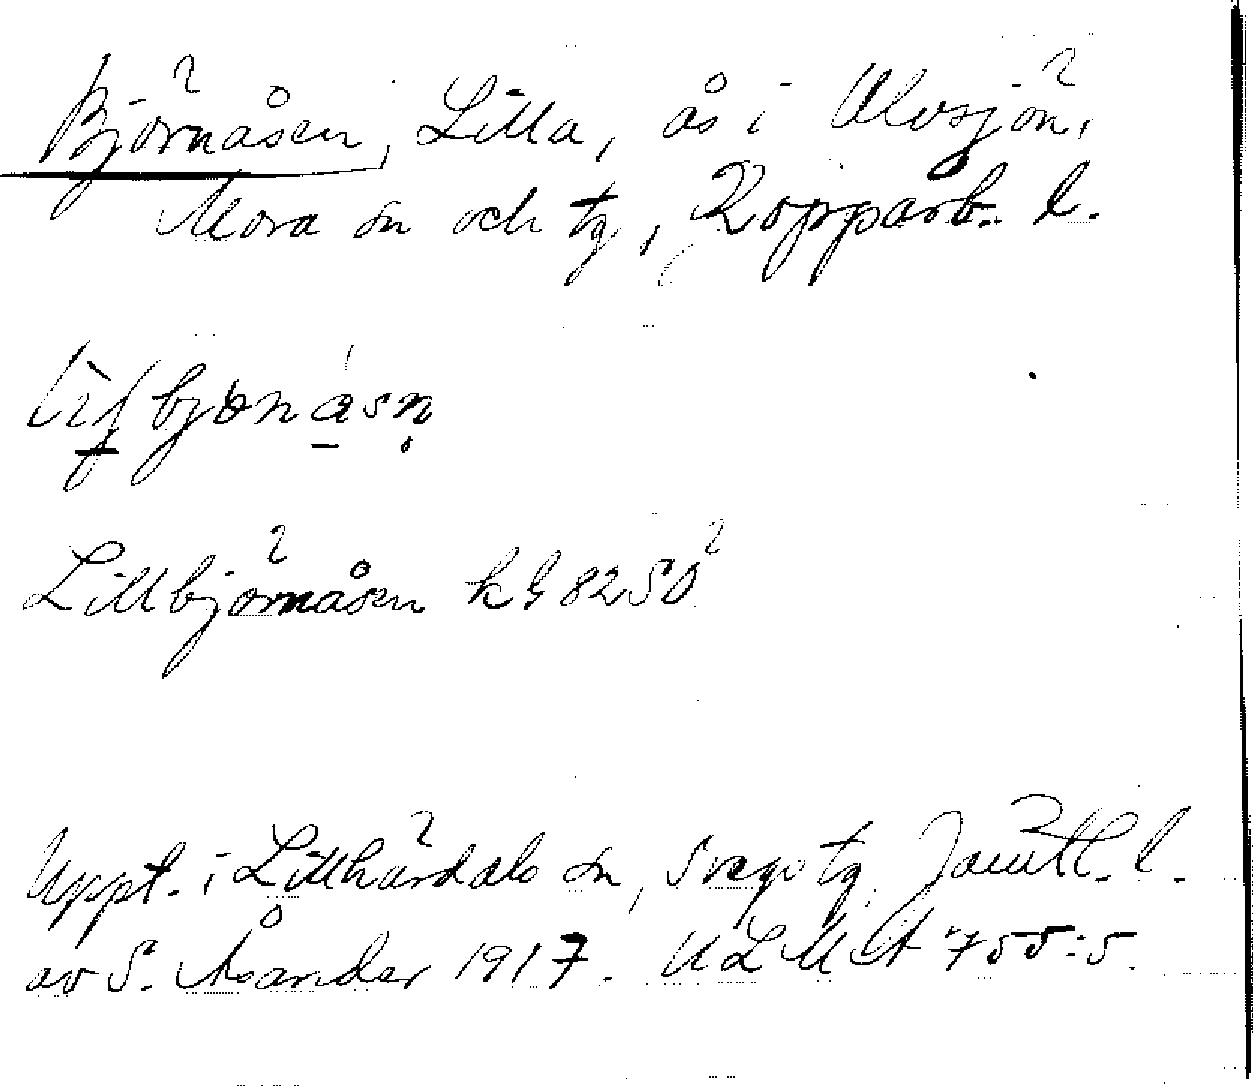 Björnåsen, Lilla, ås i Älvsjön,
Mora sn och tg, Kopparb. l.
bjönåsn
Lillbjörnåsen kG 8250
Uppt. i Lillhärdals sn, Svegs tg, Jämtl. l.
av S. Åsander 1917. ULMA 755:5.